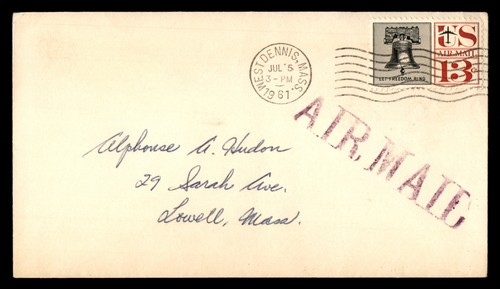 WEST DENNIS, MASS.
JUL 5
3-PM
1961
US
AIR MAIL
13¢
LET FREEDOM RING
AIR MAIL
Alphonse A. Hudon
29 Sarah Ave.
Lowell, Mass.